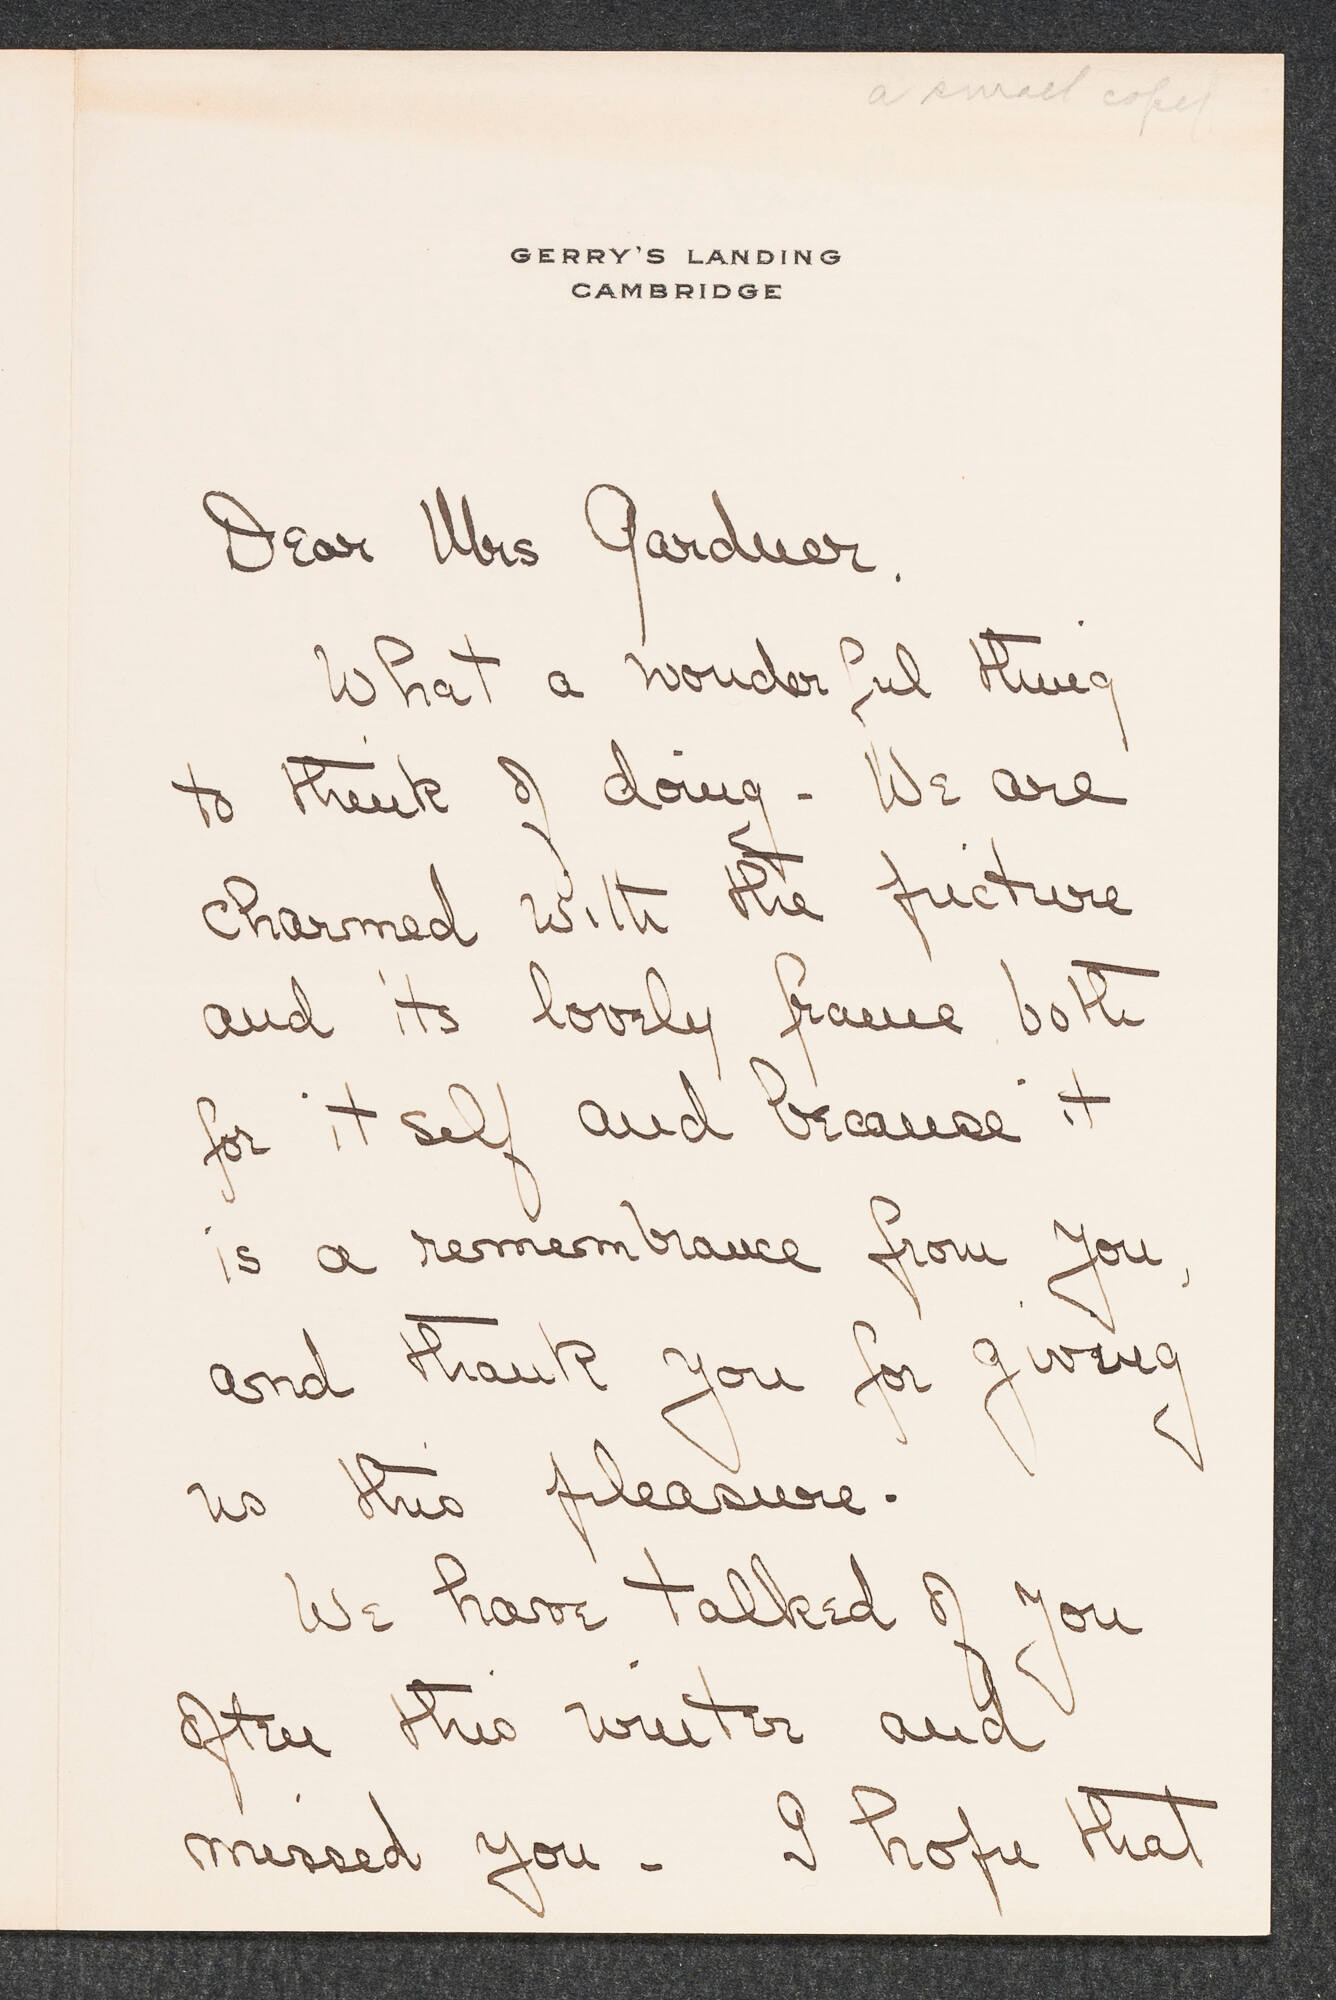 a small copy
GERRY'S LANDING
CAMBRIDGE
Dear Mrs Gardner.
What a wonderful thing
to think of doing - We are
charmed with the picture
and its lovely frame both
for itself and because it
is a remembrance from you,
and thank you for giving
us this pleasure.
We have talked of you
often this winter and
missed you - I hope that